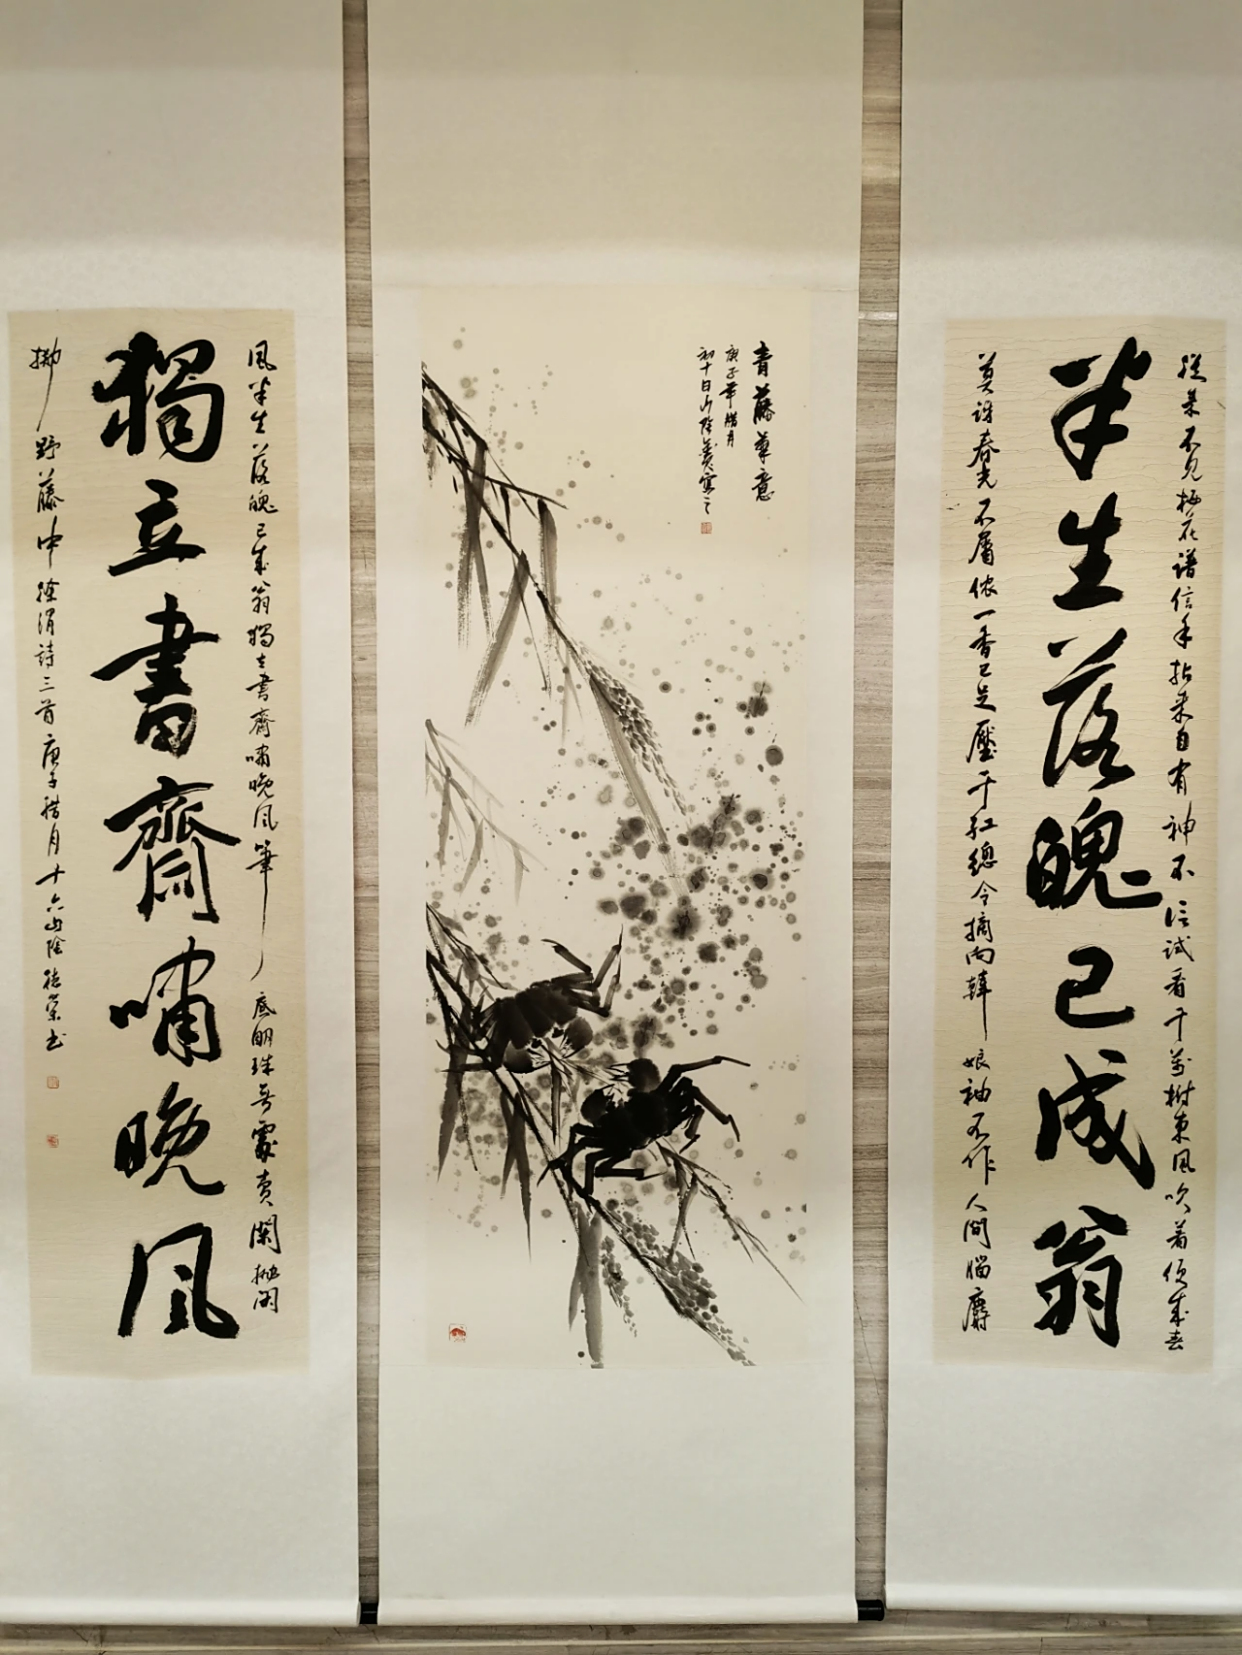 從來不見梅花譜信手拈來自有神不信試看千萬樹東風吹着便成春
半生落魄已成翁
莫訝春光不屬儂一香已足壓千紅總令摘向韓娘袖不作人間腦麝
青藤筆意
庚子年臘月
初十日山陰寫之
風半生落魄已成翁獨立書齋嘯晚風筆底明珠無處賣閑拋閑
獨立書齋嘯晚風
擲野藤中徐渭詩三首庚子臘月十六山陰德榮書